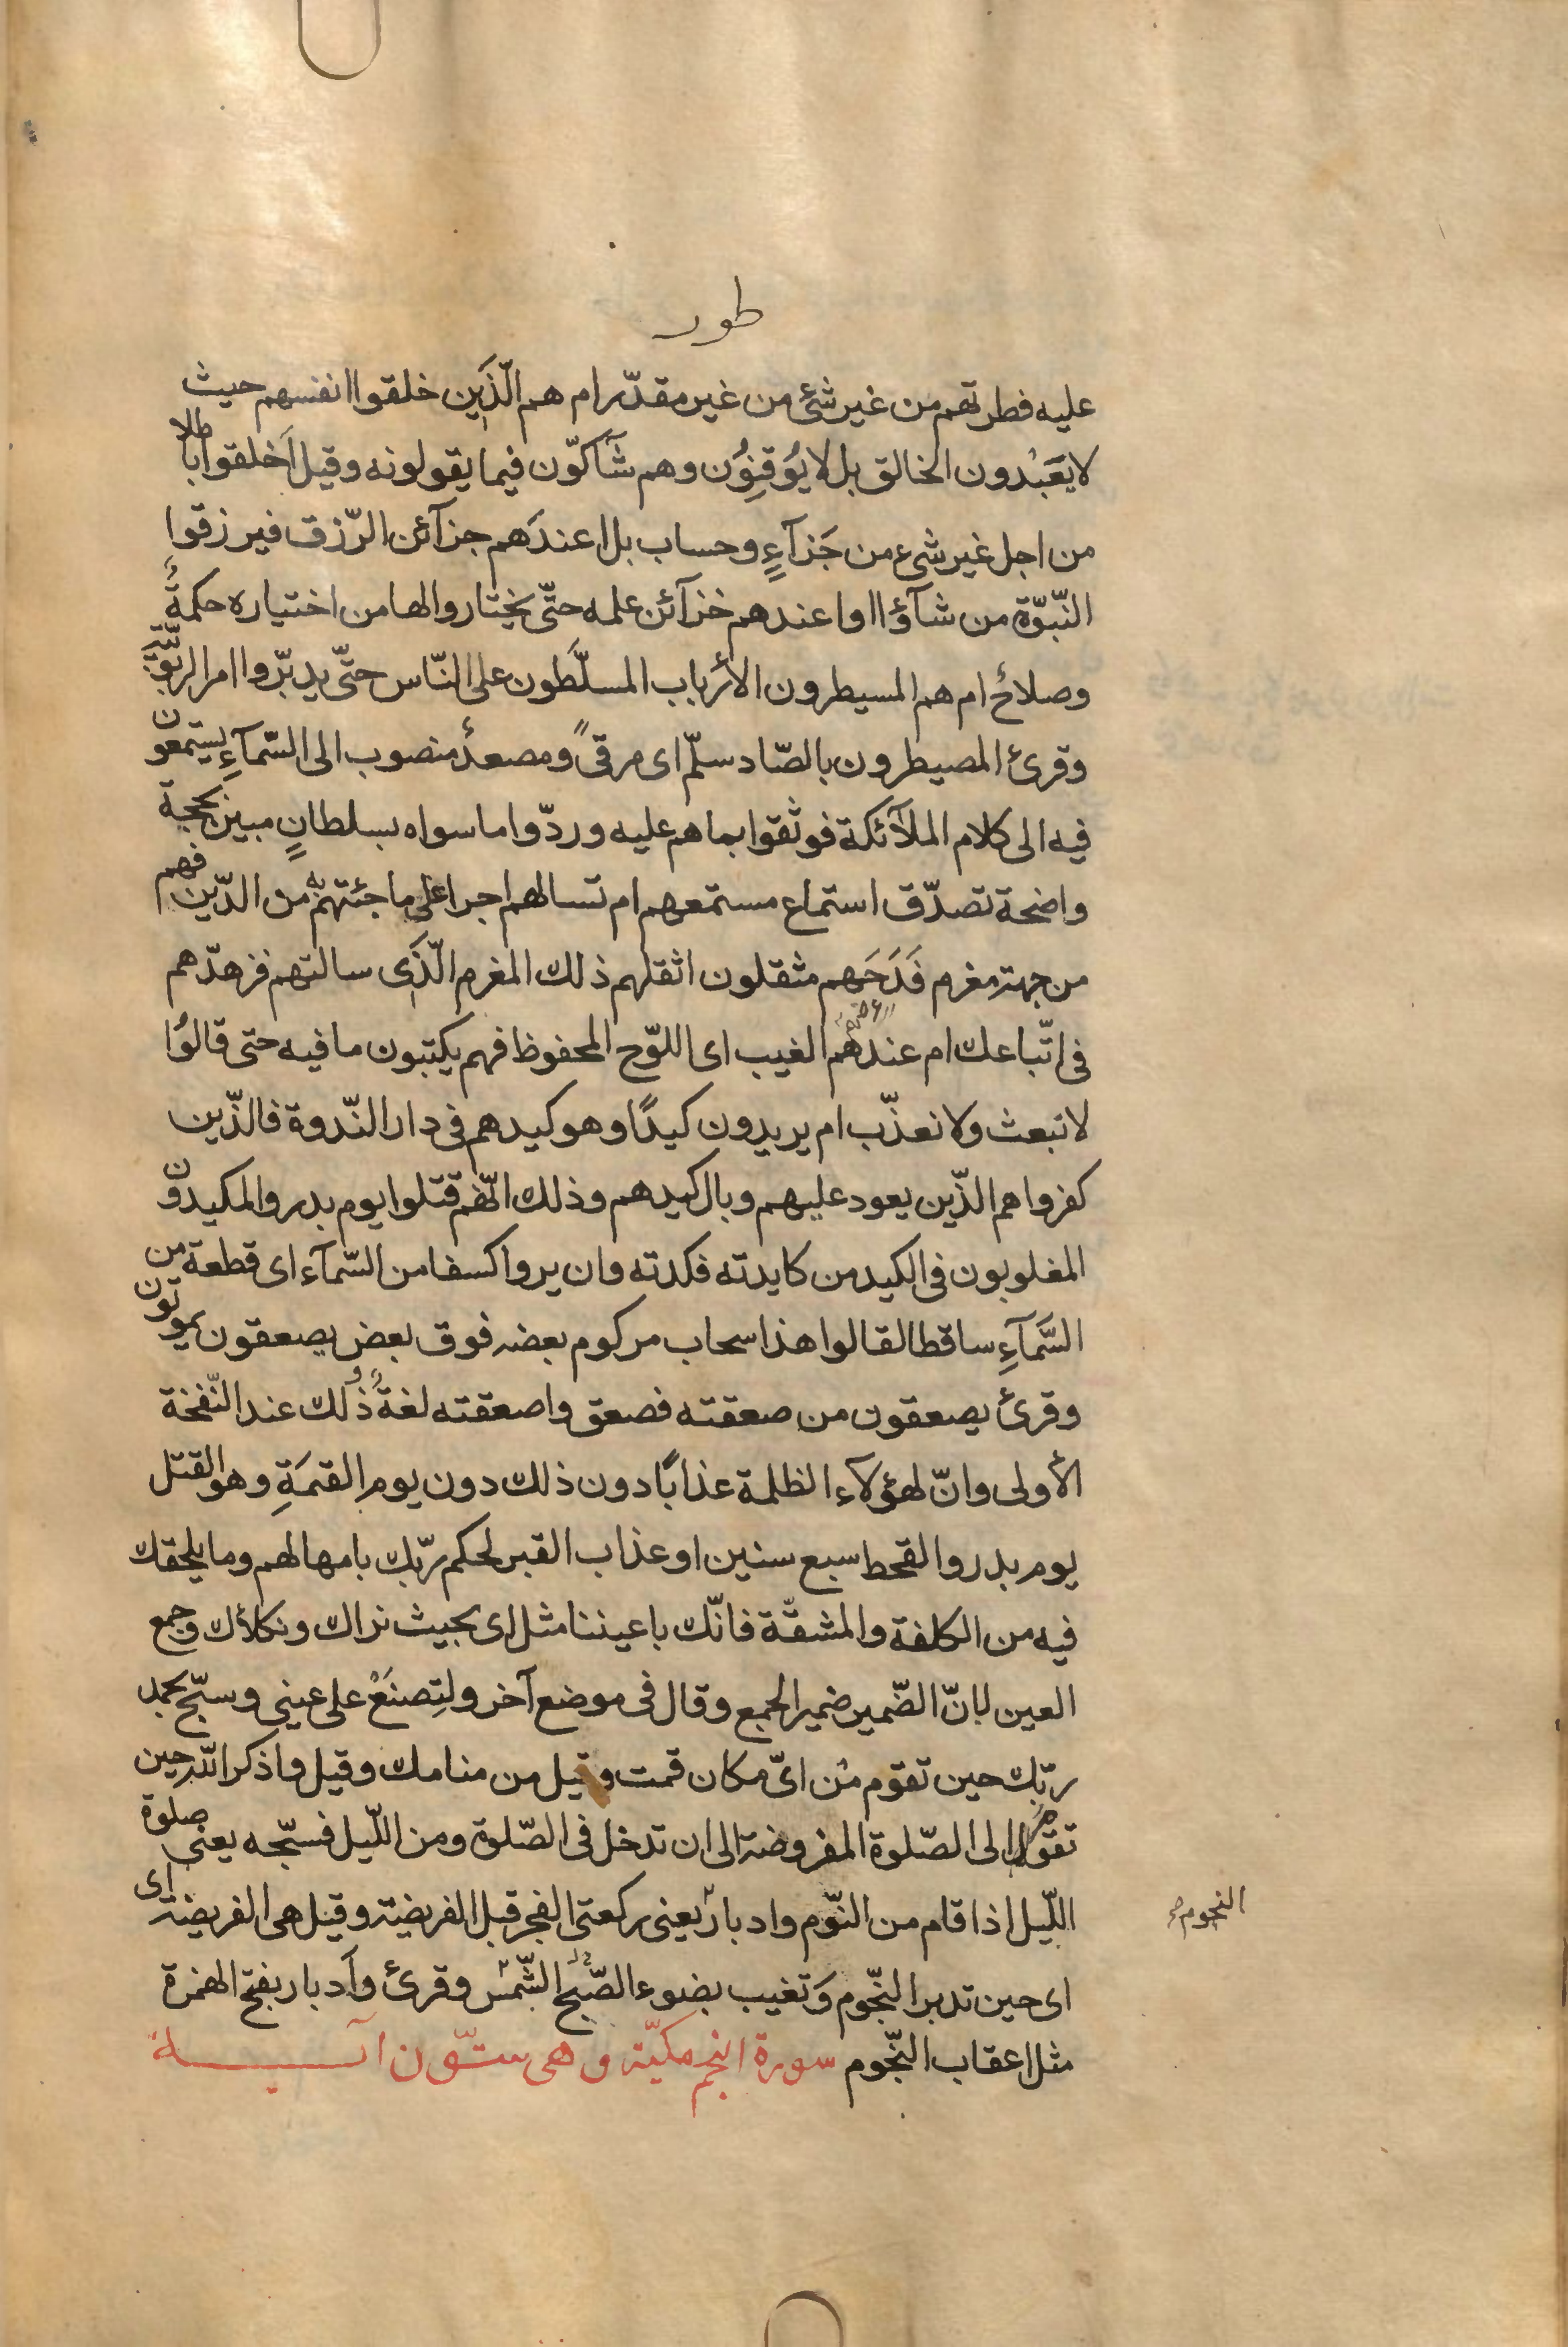 طور
عليه فطرتهم من غير شئ من غير مقدّر ام هم الّذين خلقوا انفسهم حيث
لا يَعْبُدون الخالق بل لا يُوقِنُون وهم شآكّون فيما يقولونه وقيل أخلقوا باطلا
من اجل غير شیء من جَزآءٍ وحساب بل اعندَهم خزآئن الرّزق فيرزقوا
النّبوّة من شآؤا او اعندهم خزآئن علمه حتّى يختاروا لها من اختياره حكمةٌ
وصلاحٌ ام هم المسيطرون الأرباب المسلّطون على النّاس حتّى يدبّروا امر الربوبيّة
وقرئ المصيطرون بالصّاد سلّم اى مرقىً ومصعدٌ منصوب الى السّمآءِ يستمعون
فيه الى كلام الملآئكة فوثقوا بما هم عليه وردّوا ما سواه بسلطانٍ مبين بحجة
واضحة تصدّق استماع مستمعهم ام تسالهم اجرا على ما جئتهم به من الدّين فهم
من جهة مغرم فَدَحَهم مثقلون اثقلهم ذلك المغرم الّذى سالتهم فزهدّهم
فى اتّباعك ام عندهم الغيب اى اللوّح المحفوظ فهم يكتبون ما فيه حتى قالوُا
لا نبعث ولا نعذّب ام يريدون كيدًا وهو كيدهم فى دار النّدوة فالذّين
كفروا هم الذّين يعود عليهم وبال كيدهم وذلك انّهم قتلوا يوم بدر والمكيدون
المغلوبون فى الكيد من كايدته فكدته وان يروا كسفا من السّمآء اى قطعة من
السَّمآءِ ساقطا لقالوا هذا سحاب مركوم بعضه فوق بعض يصعقون يموتون
وقرئ يصعقون من صعقته فصعق واصعقته لغةٌ وذلك عند النّفخة
الأولى وانّ لهؤلآء الظلمة عذابًا دون ذلك دون يوم القيمَةِ وهو القتل
يوم بدر والقحط سبع سنين او عذاب القبر لحكم ربّك بامهالهم وما يلحقك
فيه من الكلفة والمشقّة فانّك باعيننا مثل اى بحيث نراك ونكلأك وجمع
العين لانّ الضّمير ضمير الجمع وقال فى موضع آخر ولتِصنَعْ على عينى وسبّح بحمد
ربّك حين تقوم من اىّ مكان قمت وقيل من منامك وقيل واذكر اللّه حين
تقوم الى الصّلوة المفروضة الى ان تدخل فى الصّلوة ومن اللّيل فسبّحه يعنى صلوة
اللّيل اذا قام من النّوم وادبار يعنى ركعتى الفجر قبل الفريضة وقيل هى الفريضة اى
النجوم صح
اى حين تدبر النّجوم وَتغيب بضوء الصّبح الشّمس وقرئ وأدبار بفتح الهمزة
مثل اعقاب النّجوم سورة النجم مكيّة وهى ستّون آيـــة